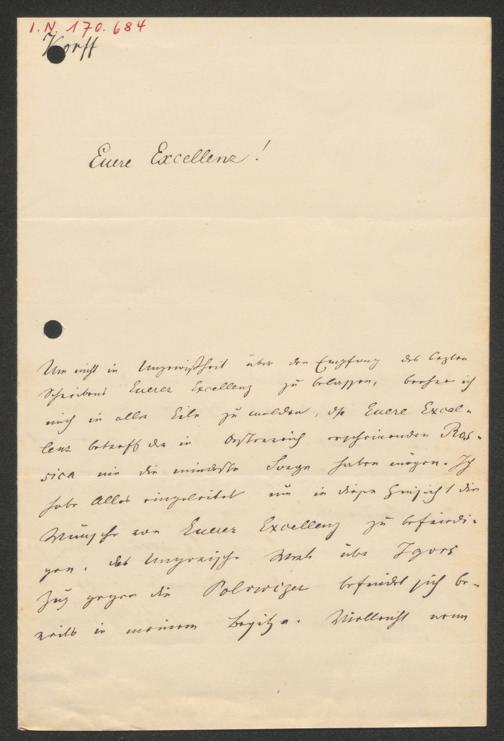 I.N. 170.684
Korff
Euere Excellenz!
Um nicht in Ungewißheit über den Empfang des letzten
Schreibens Euerer Excellenz zu belassen, beehre ich
mich in aller Eile zu melden, daß Euere Excel-
lenz betreff der in Oesterreich erscheinenden Ros-
sica nie die mindeste Sorge haben mögen. Ich
habe Alles eingeleitet um in dieser Hinsicht die
Wünsche von Euerer Excellenz zu befriedi-
gen. das Ungarische Werk über Igors
Zug gegen die Polowizer befindet sich be-
reits in meinem Besitze. Vielleicht wenn